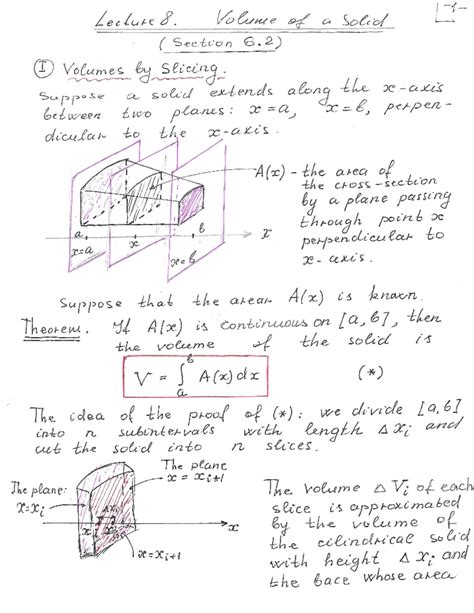 Lecture 8. Volume of a Solid
-1-
(Section 6.2)
I Volumes by Slicing.
Suppose a solid extends along the x-axis
between two planes: x=a, x=b, perpen-
dicular to the x-axis.
A(x) - the area of
the cross-section
by a plane passing
through point x
perpendicular to
x-axis.
a x b x
x=a
x=b
Suppose that the area A(x) is known.
Theorem. If A(x) is continuous on [a,b], then
the volume of the solid is
V = ∫ₐᵇ A(x) dx (*)
The idea of the proof of (*): we divide [a,b]
into n subintervals with length Δxi and
cut the solid into n slices.
The plane:
x=xi
The plane
x = xi+1
Δxi
x
x=xi+1
The volume ΔVi of each
slice is approximated
by the volume of
the cylindrical solid
with height Δxi and
the base whose area